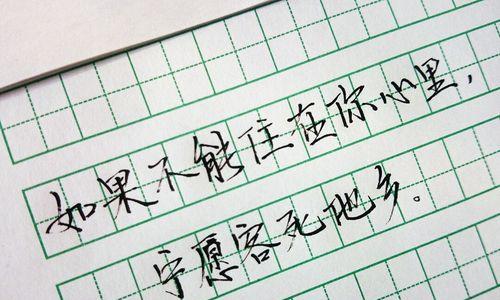 如果不能住在你心里，
宁愿客死他乡。